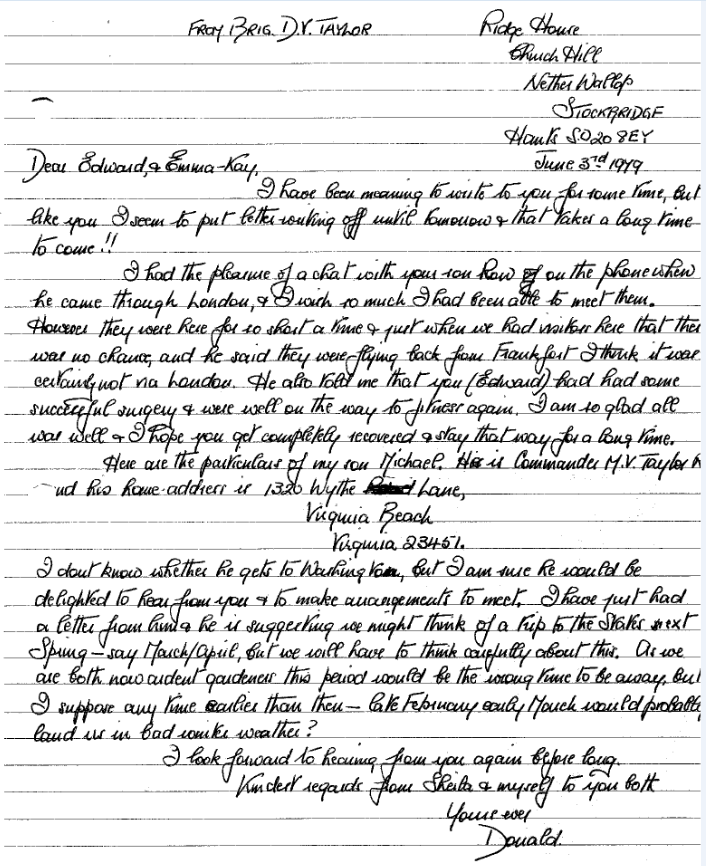 FROM BRIG. D.V. TAYLOR
Ridge House
Church Hill
Nether Wallop
STOCKBRIDGE
Hants SO20 8EY
June 3rd 1979
Dear Edward, & Emma-Kay,
I have been meaning to write to you for some time, but
like you I seem to put letter writing off until tomorrow & that takes a long time
to come!!
I had the pleasure of a chat with your son on the phone when
he came through London, & I wish so much I had been able to meet them.
However they were here for so short a time & just when we had visitors here that there
was no chance, and he said they were flying back from Frankfort I think it was
certainly not via London. He also told me that you (Edward) had had some
successful surgery & were well on the way to fitness again. I am so glad all
was well & I hope you get completely recovered & stay that way for a long time.
Here are the particulars of my son Michael. He is Commander M.V. Taylor
and his home-address is 1320 Wythe Lane,
Virginia Beach
Virginia 23451.
I dont know whether he gets to Washington, but I am sure he would be
delighted to hear from you & to make arrangements to meet. I have just had
a letter from him & he is suggesting we might think of a trip to the States next
Spring – say March/April, but we will have to think carefully about this. As we
are both now ardent gardeners this period would be the wrong time to be away, but
I suppose any time earlier than then – late February early March would probably
land us in bad winter weather?
I look forward to hearing from you again before long.
Kindest regards from Sheila & myself to you both
Yours ever
Donald.